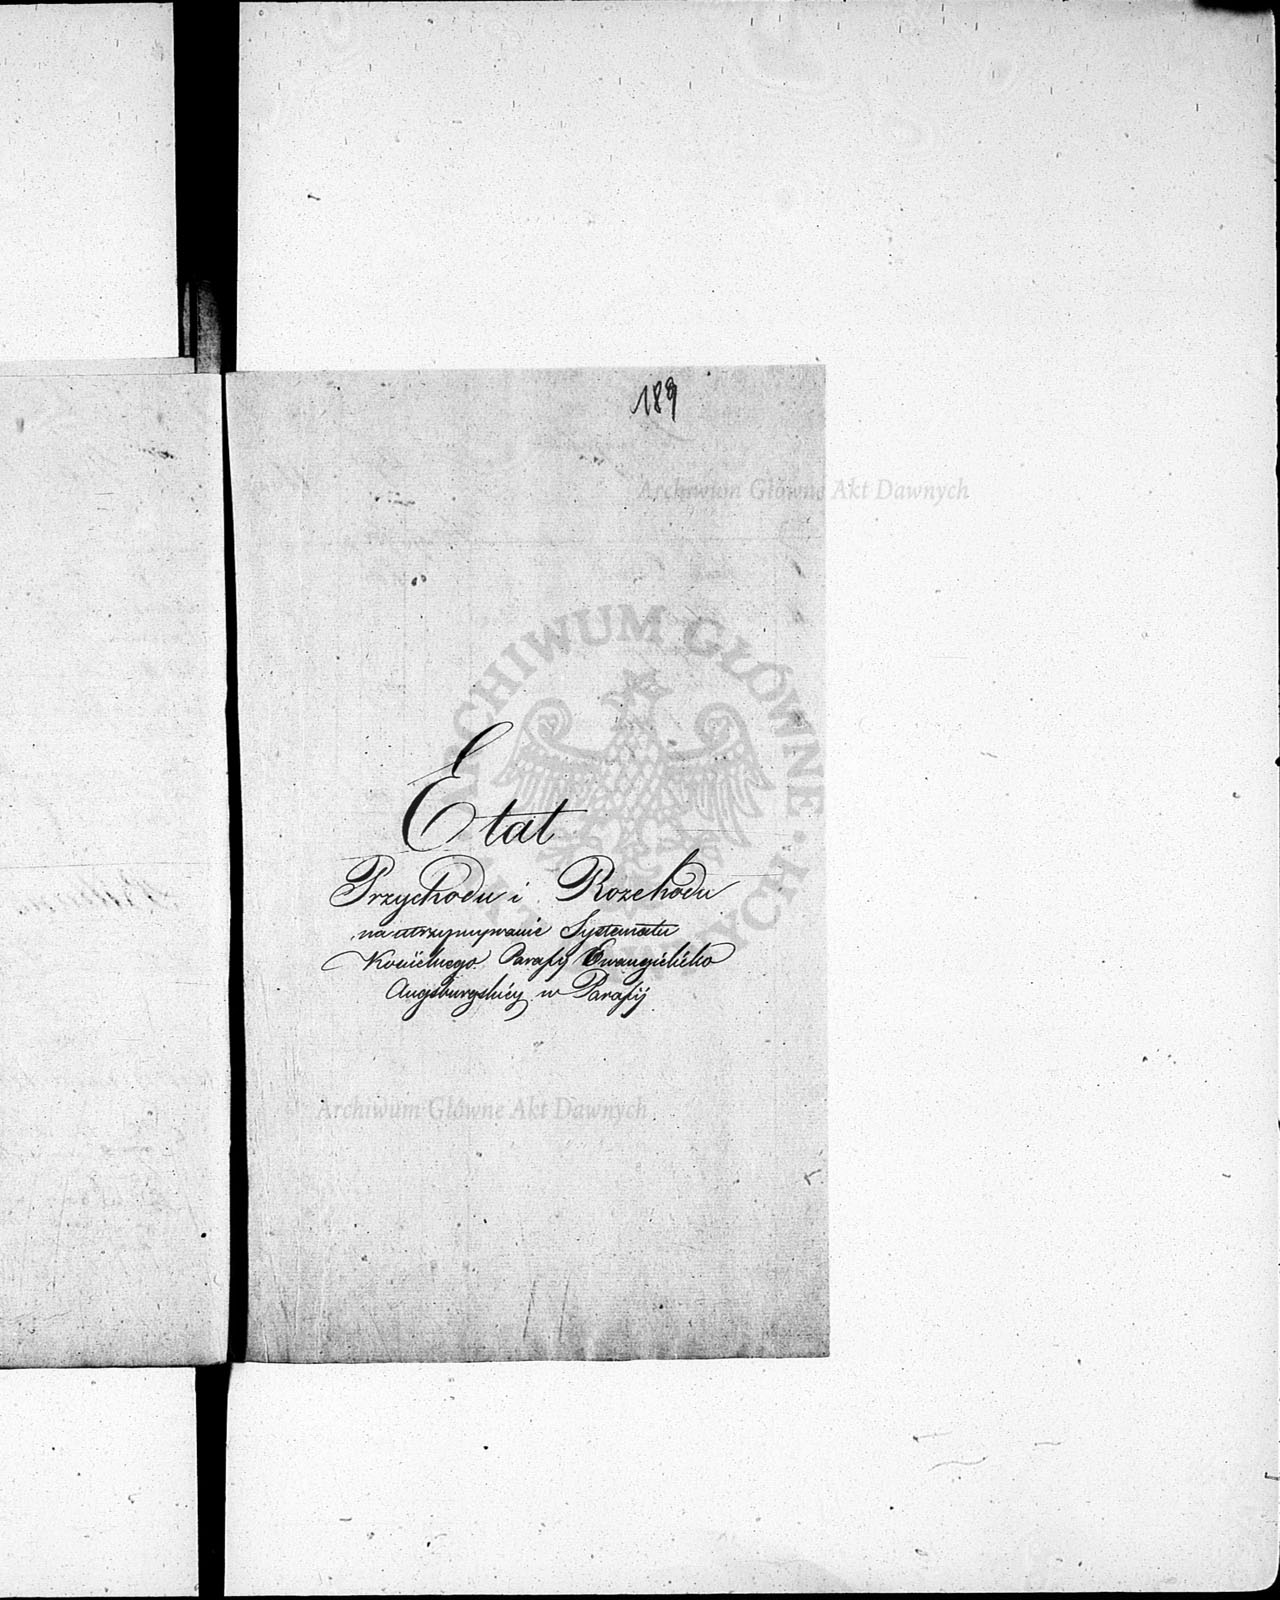 189
Archiwum Główne Akt Dawnych
ARCHIWUM GŁÓWNE
Etat
Przychodu i Rozchodu
na utrzymywanie Systematu
Kościelnego Parafij Ewangielicko
Augsburgskiey w Parafij
Archiwum Główne Akt Dawnych